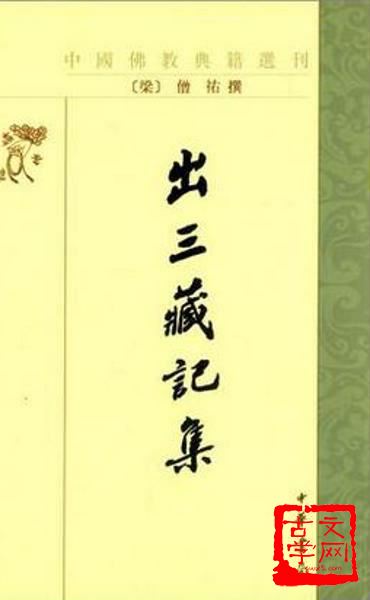 中國佛教典籍選刊
〔梁〕僧祐撰
出三藏記集
中華
古学文网